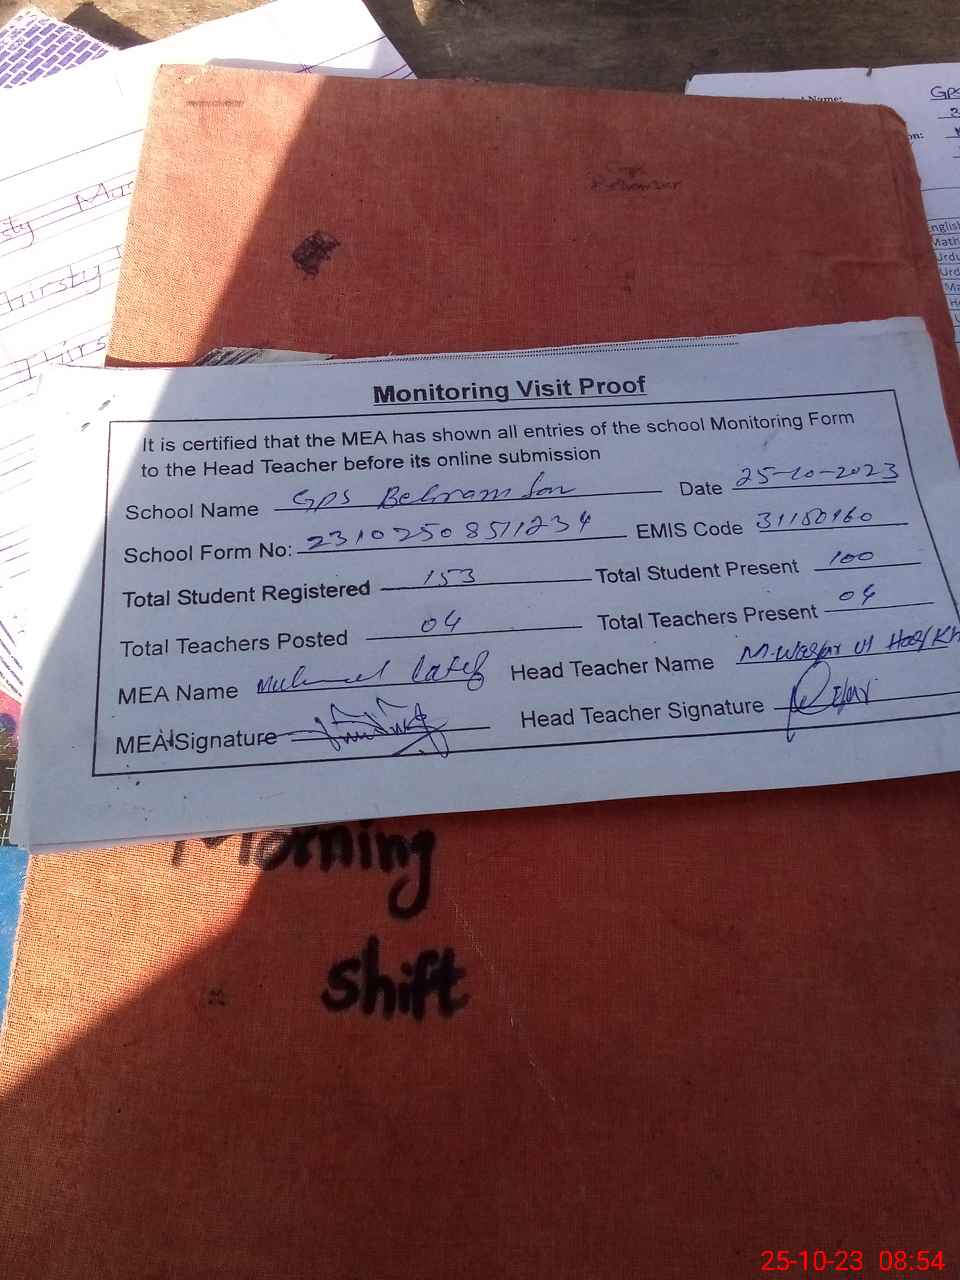 Name:
GPS
on:
sty
Thirsty
Thirs
English
Math
Urdu
Urd
Ma
Monitoring Visit Proof
It is certified that the MEA has shown all entries of the school Monitoring Form
to the Head Teacher before its online submission
School Name GPS Date 25-10-2023
School Form No: 23102508511234 EMIS Code 31150160
Total Student Registered 153 Total Student Present 100
Total Teachers Posted 04 Total Teachers Present 04
MEA Name Head Teacher Name M. Waqar Ul Haq Kh
MEA Signature Head Teacher Signature
Morning
Shift
25-10-23 08:54